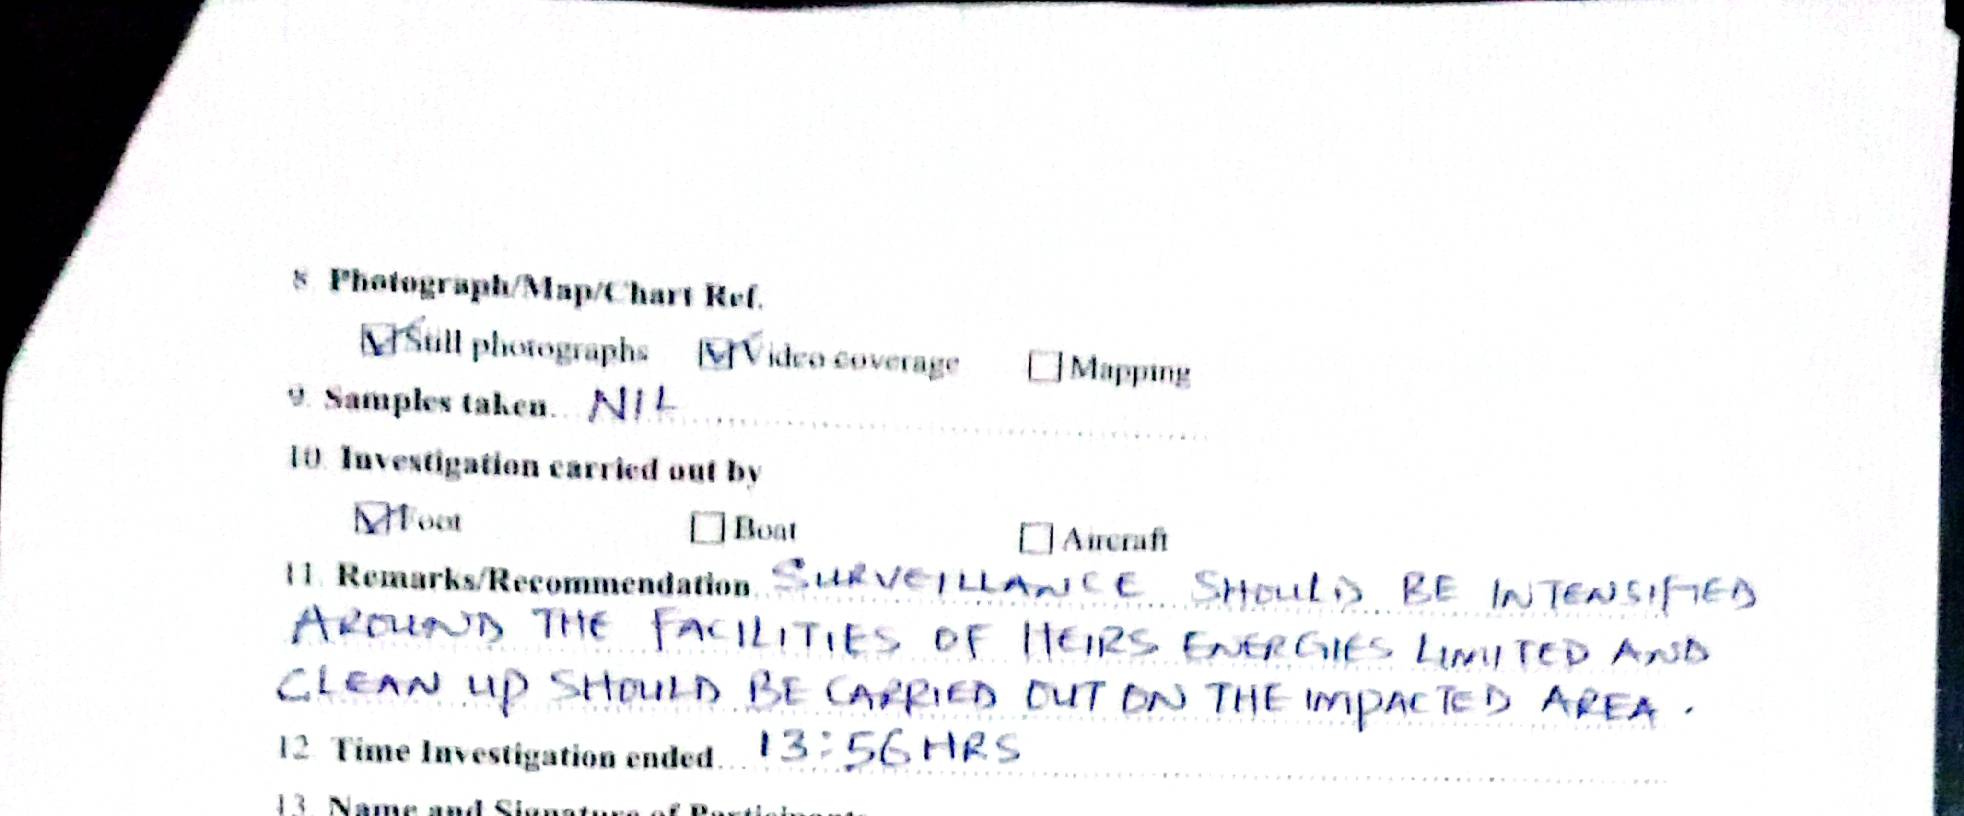 8. Photograph/Map/Chart Ref.
☑ Still photographs ☑ Video coverage ☐ Mapping
9. Samples taken... NIL
10. Investigation carried out by
☑ Foot ☐ Boat ☐ Aircraft
11. Remarks/Recommendation. SURVEILLANCE SHOULD BE INTENSIFIED
AROUND THE FACILITIES OF HEIRS ENERGIES LIMITED AND
CLEAN UP SHOULD BE CARRIED OUT ON THE IMPACTED AREA.
12. Time Investigation ended... 13:56 HRS
13. Name and Signature of Participants